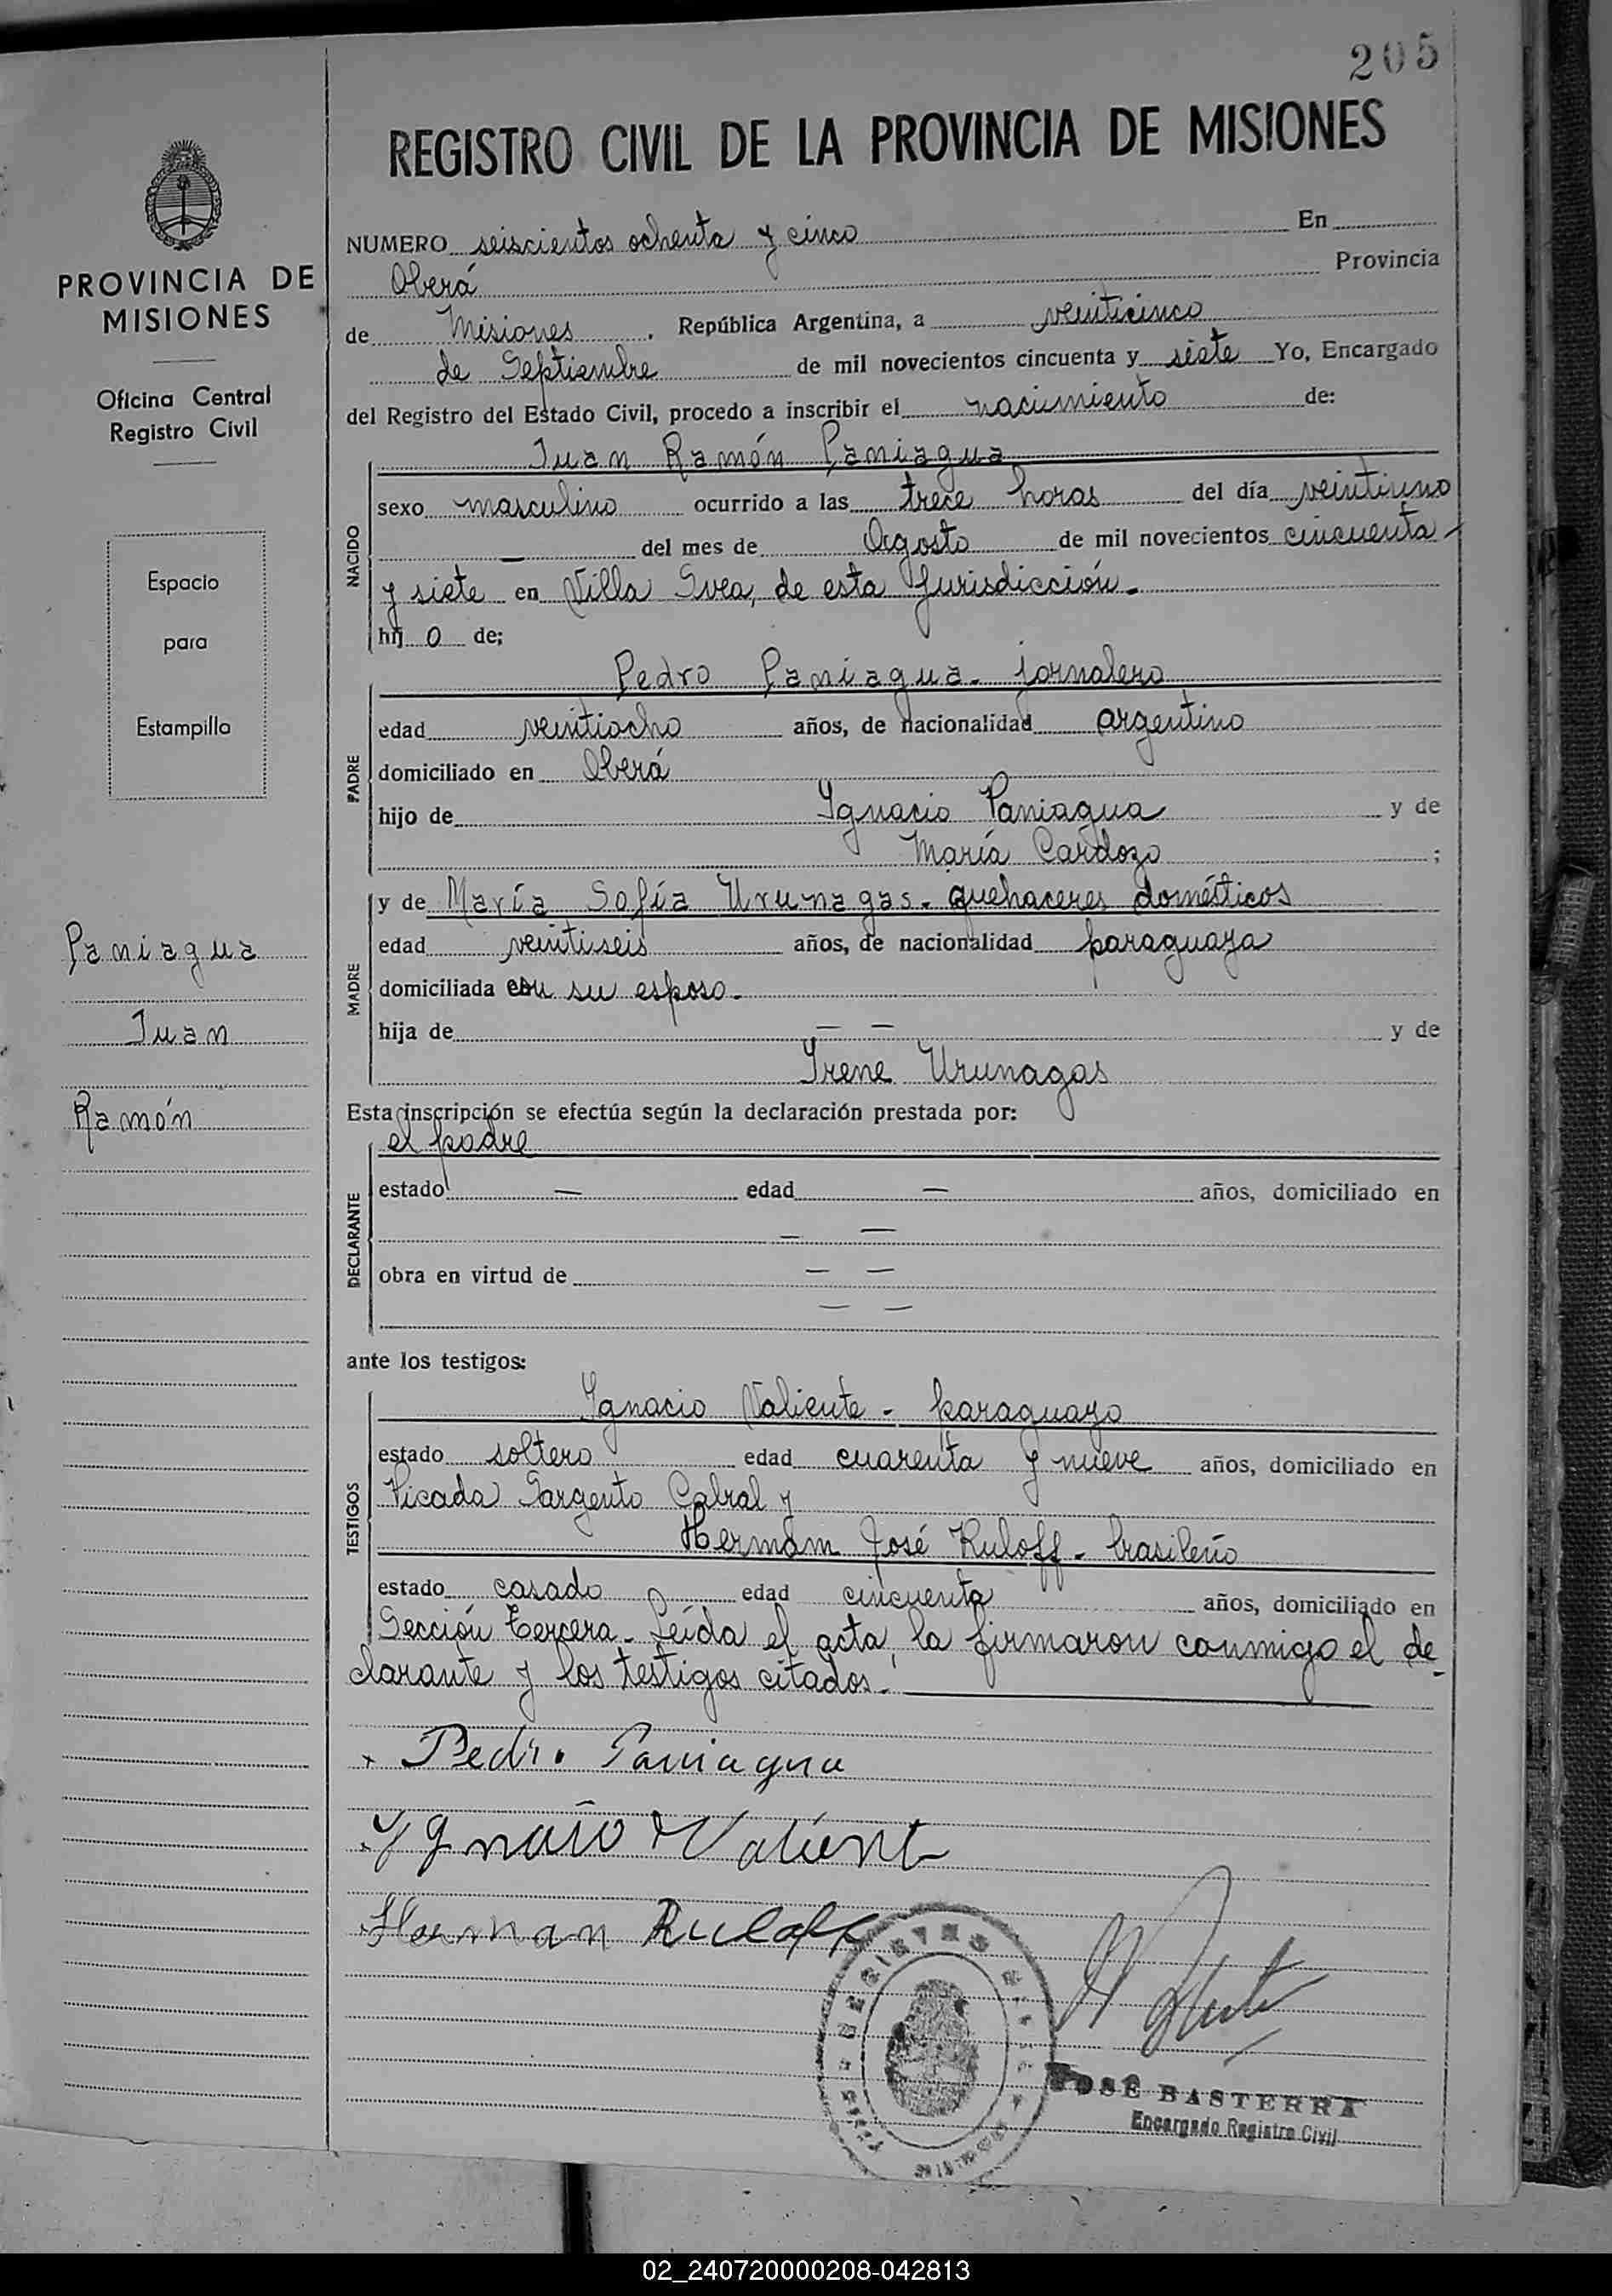 205
REGISTRO CIVIL DE LA PROVINCIA DE MISIONES
PROVINCIA DE
MISIONES
Oficina Central
Registro Civil
Espacio
para
Estampilla
Paniagua
Juan
Ramón
NUMERO seiscientos ochenta y cinco En
Oberá Provincia
de Misiones. República Argentina, a veinticinco
de Septiembre de mil novecientos cincuenta y siete Yo, Encargado
del Registro del Estado Civil, procedo a inscribir el nacimiento de:
NACIDO
Juan Ramón Paniagua
sexo masculino ocurrido a las trece horas del día veintiuno
— del mes de Agosto de mil novecientos cincuenta
y siete en Villa Svea, de esta Jurisdicción.
hij o de;
PADRE
Pedro Paniagua. jornalero
edad veintiocho años, de nacionalidad argentino
domiciliado en Oberá
hijo de Ignacio Paniagua y de
María Cardozo ;
MADRE
y de María Sofía Urunagas. quehaceres domésticos
edad veintiseis años, de nacionalidad paraguaya
domiciliada con su esposo.
hija de — — y de
Irene Urunagas
Esta inscripción se efectúa según la declaración prestada por:
DECLARANTE
el padre
estado — edad — años, domiciliado en
— —
obra en virtud de — —
— —
ante los testigos:
TESTIGOS
Ignacio Valiente - paraguayo
estado soltero edad cuarenta y nueve años, domiciliado en
Picada Sargento Cabral y
Hermám José Ruloff - brasileño
estado casado edad cincuenta años, domiciliado en
Sección tercera. Leída el acta, la firmaron conmigo el de
clarante y los testigos citados.
Pedro Paniagua
Ygnacio Valient
Herman Ruloff
REGISTRO
JOSÉ BASTERRA
Encargado Registro Civil
02_240720000208-042813